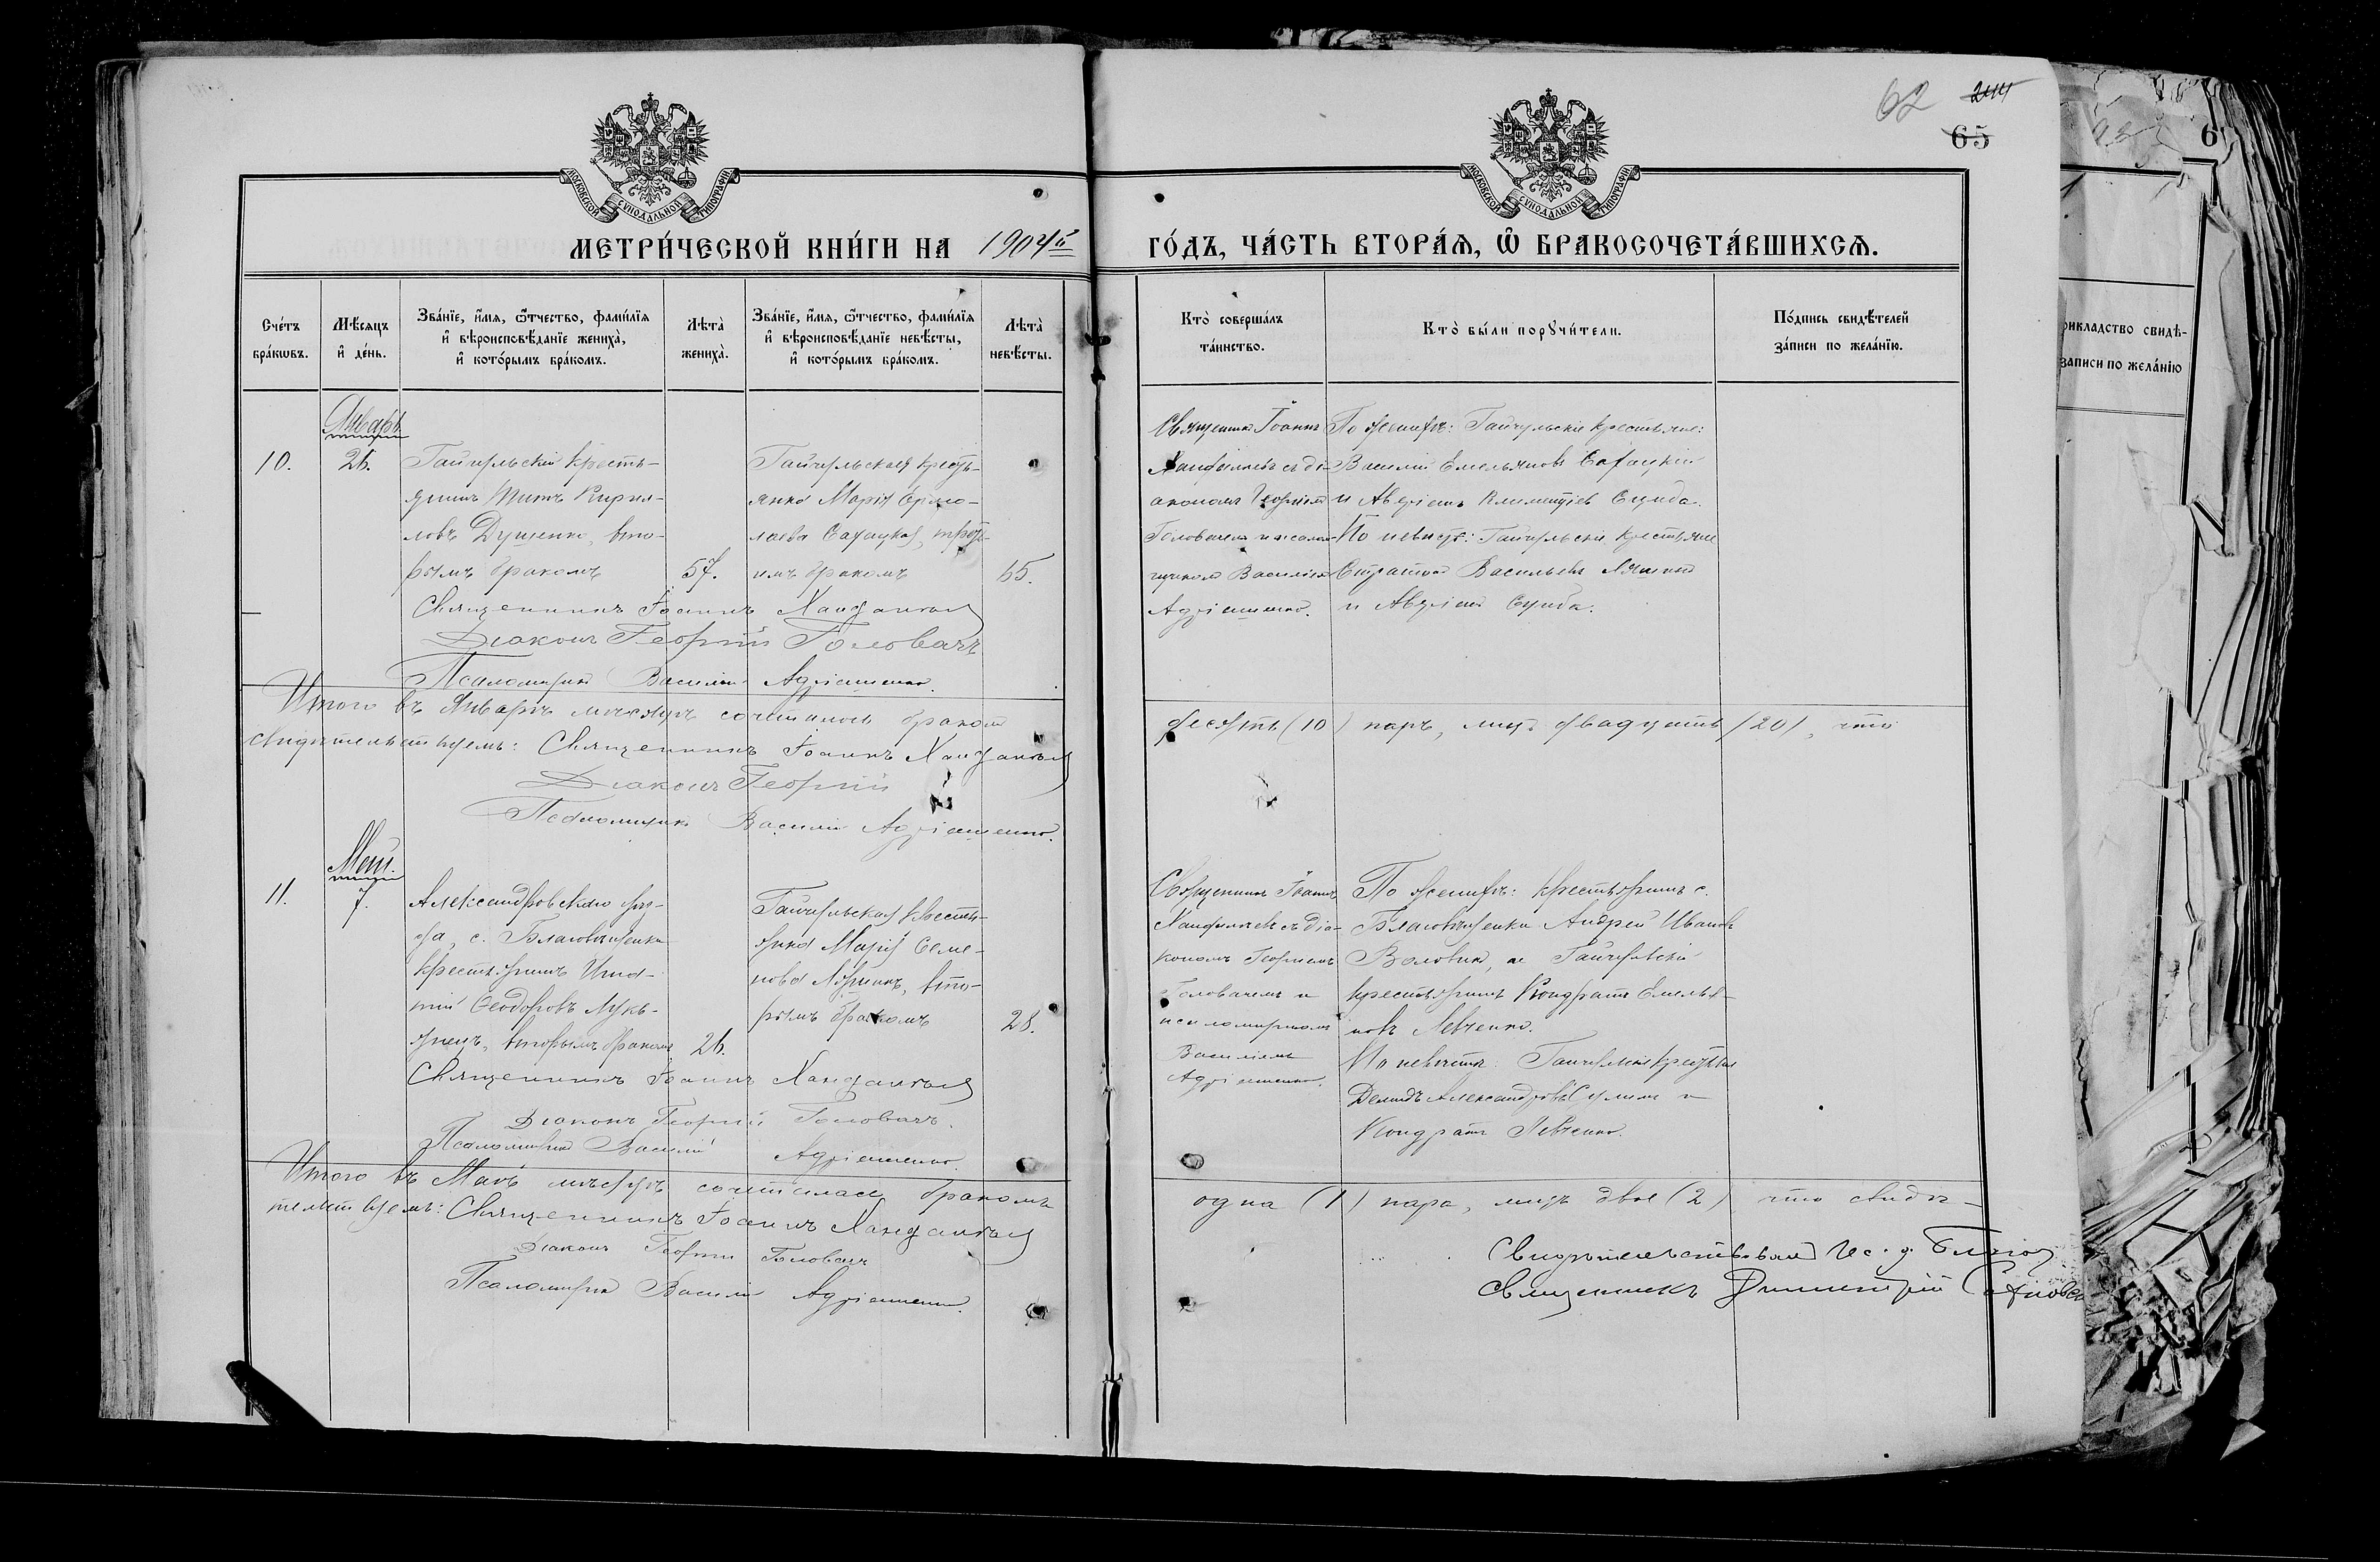 62 244
65
МОСКОВСКОЙ СѴНОДАЛЬНОЙ ТИПОГРАФІИ
МОСКОВСКОЙ СѴНОДАЛЬНОЙ ТИПОГРАФІИ
МЕТРИ́ЧЕСКОЙ КНИ́ГИ НА 1904й ГО́ДЪ, ЧА́СТЬ ВТОРА́Ѧ, Ѽ БРАКОСОЧЕТА́ВШИХСѦ.
Сче́тъ
бра́кѡвъ.
Мѣ́сяцъ
и҆ де́нь.
Зва́нїе, и҆́мя, ѻ҆́тчество, фами́лїя
и҆ вѣроисповѣ́данїе жениха̀,
и҆ кото́рымъ бра́комъ.
Лѣта̀
жениха̀.
Зва́нїе, и҆́мя, ѻ҆́тчество, фами́лїя
и҆ вѣроисповѣ́данїе невѣ́сты,
и҆ кото́рымъ бра́комъ.
Лѣта̀
невѣ́сты.
Кто̀ соверша́лъ
та́инство.
Кто̀ бы́ли порꙋчи́тели.
По́дпись свидѣ́телей
за́писи по жела́нїю.
10.
Январь
26.
Гайчульскій кресть-
янинъ Титъ Кирил-
ловъ Дущенко, вто-
рымъ бракомъ
57.
Гайчульская кресть-
янка Марія Ермо-
лаева Сахацкая, треть-
имъ бракомъ
55.
Священникъ Іоаннъ
съ ді-
акономъ Георгіемъ
Головачемъ и псалом-
щикомъ Василіемъ
Адріашенко.
По женихѣ: Гайчульскіе крестьяне:
Василій Емельяновъ Сахацкій
и Авдіенъ Климентіев Сумба.
По невѣстѣ: Гайчульскіе крестьяне
Васильевъ
и Сумба.
Священникъ Іоаннъ
Діаконъ Георгій Головачъ
Псаломщикъ Василій Адріашенко.
Итого въ Январѣ мѣсяцѣ сочеталось бракомъ десять (10) паръ, лицъ двадцать (20), что
свидѣтельствуемъ: Священникъ Іоаннъ
Діаконъ Георгій
Псаломщикъ Василій Адріашенко.
11.
Май.
7.
Александровскаго уѣз-
да, с. Благовѣщенки
крестьянинъ Игна-
тій Ѳеодоровъ Лукь-
янецъ, вторымъ бракомъ
26.
Гайчульская кресть-
янка Марія Семе-
нова вто-
рымъ бракомъ
28.
Священникъ Іоаннъ
съ діа-
кономъ Георгіемъ
Головачемъ и
псаломщикомъ
Василіемъ
Адріашенко.
По женихѣ: крестьянинъ с.
Благовѣщенки Андрей Ивановъ
Воловик, и Гайчульскій
крестьянинъ Кондратъ Емелья-
новъ Левченко.
По невѣстѣ: Гайчульскіе крестьяне
Демидъ Александровъ и
Кондратъ Левченко.
Священникъ Іоаннъ
Діаконъ Георгій Головачъ.
Псаломщикъ Василій Адріашенко.
Итого въ Маѣ мѣсяцѣ сочеталась бракомъ одна (1) пара, лицъ двое (2) что свидѣ-
тельствуемъ: Священникъ Іоаннъ
Діаконъ Георгій Головачъ
Псаломщикъ Василій Адріашенко.
Свидѣтельствовалъ Ис. д.
священникъ Димитрій